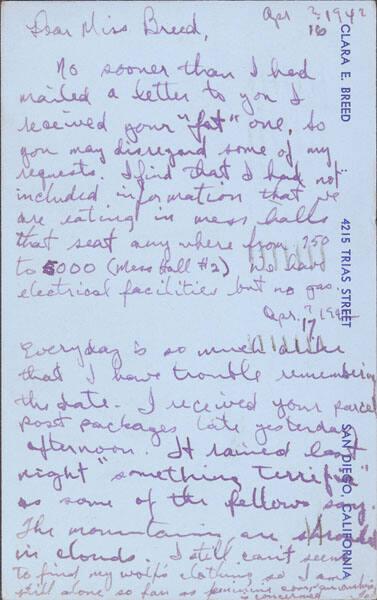 Apr ? 1942
16
Dear Miss Breed,
No sooner than I had
mailed a letter to you I
received your "fat" one, so
you may disregard some of my
requests. I find that I had not
included information that we
are eating in mess halls
that seat any where from 750
to 5000 (Mess Hall #2) We have
electrical facilities but no gas.
Apr. ? 194
17
Everyday is so much alike
that I have trouble remembering
the date. I received your parcel
post packages late yesterday
afternoon. It rained last
night "something terrific"
as some of the fellows say.
The mountains are shrouded
in clouds. I still can't seem
to find my wolf's clothing so I am
still alone so far as feminine companionship
is concerned
CLARA E. BREED
4215 TRIAS STREET
SAN DIEGO, CALIFORNIA